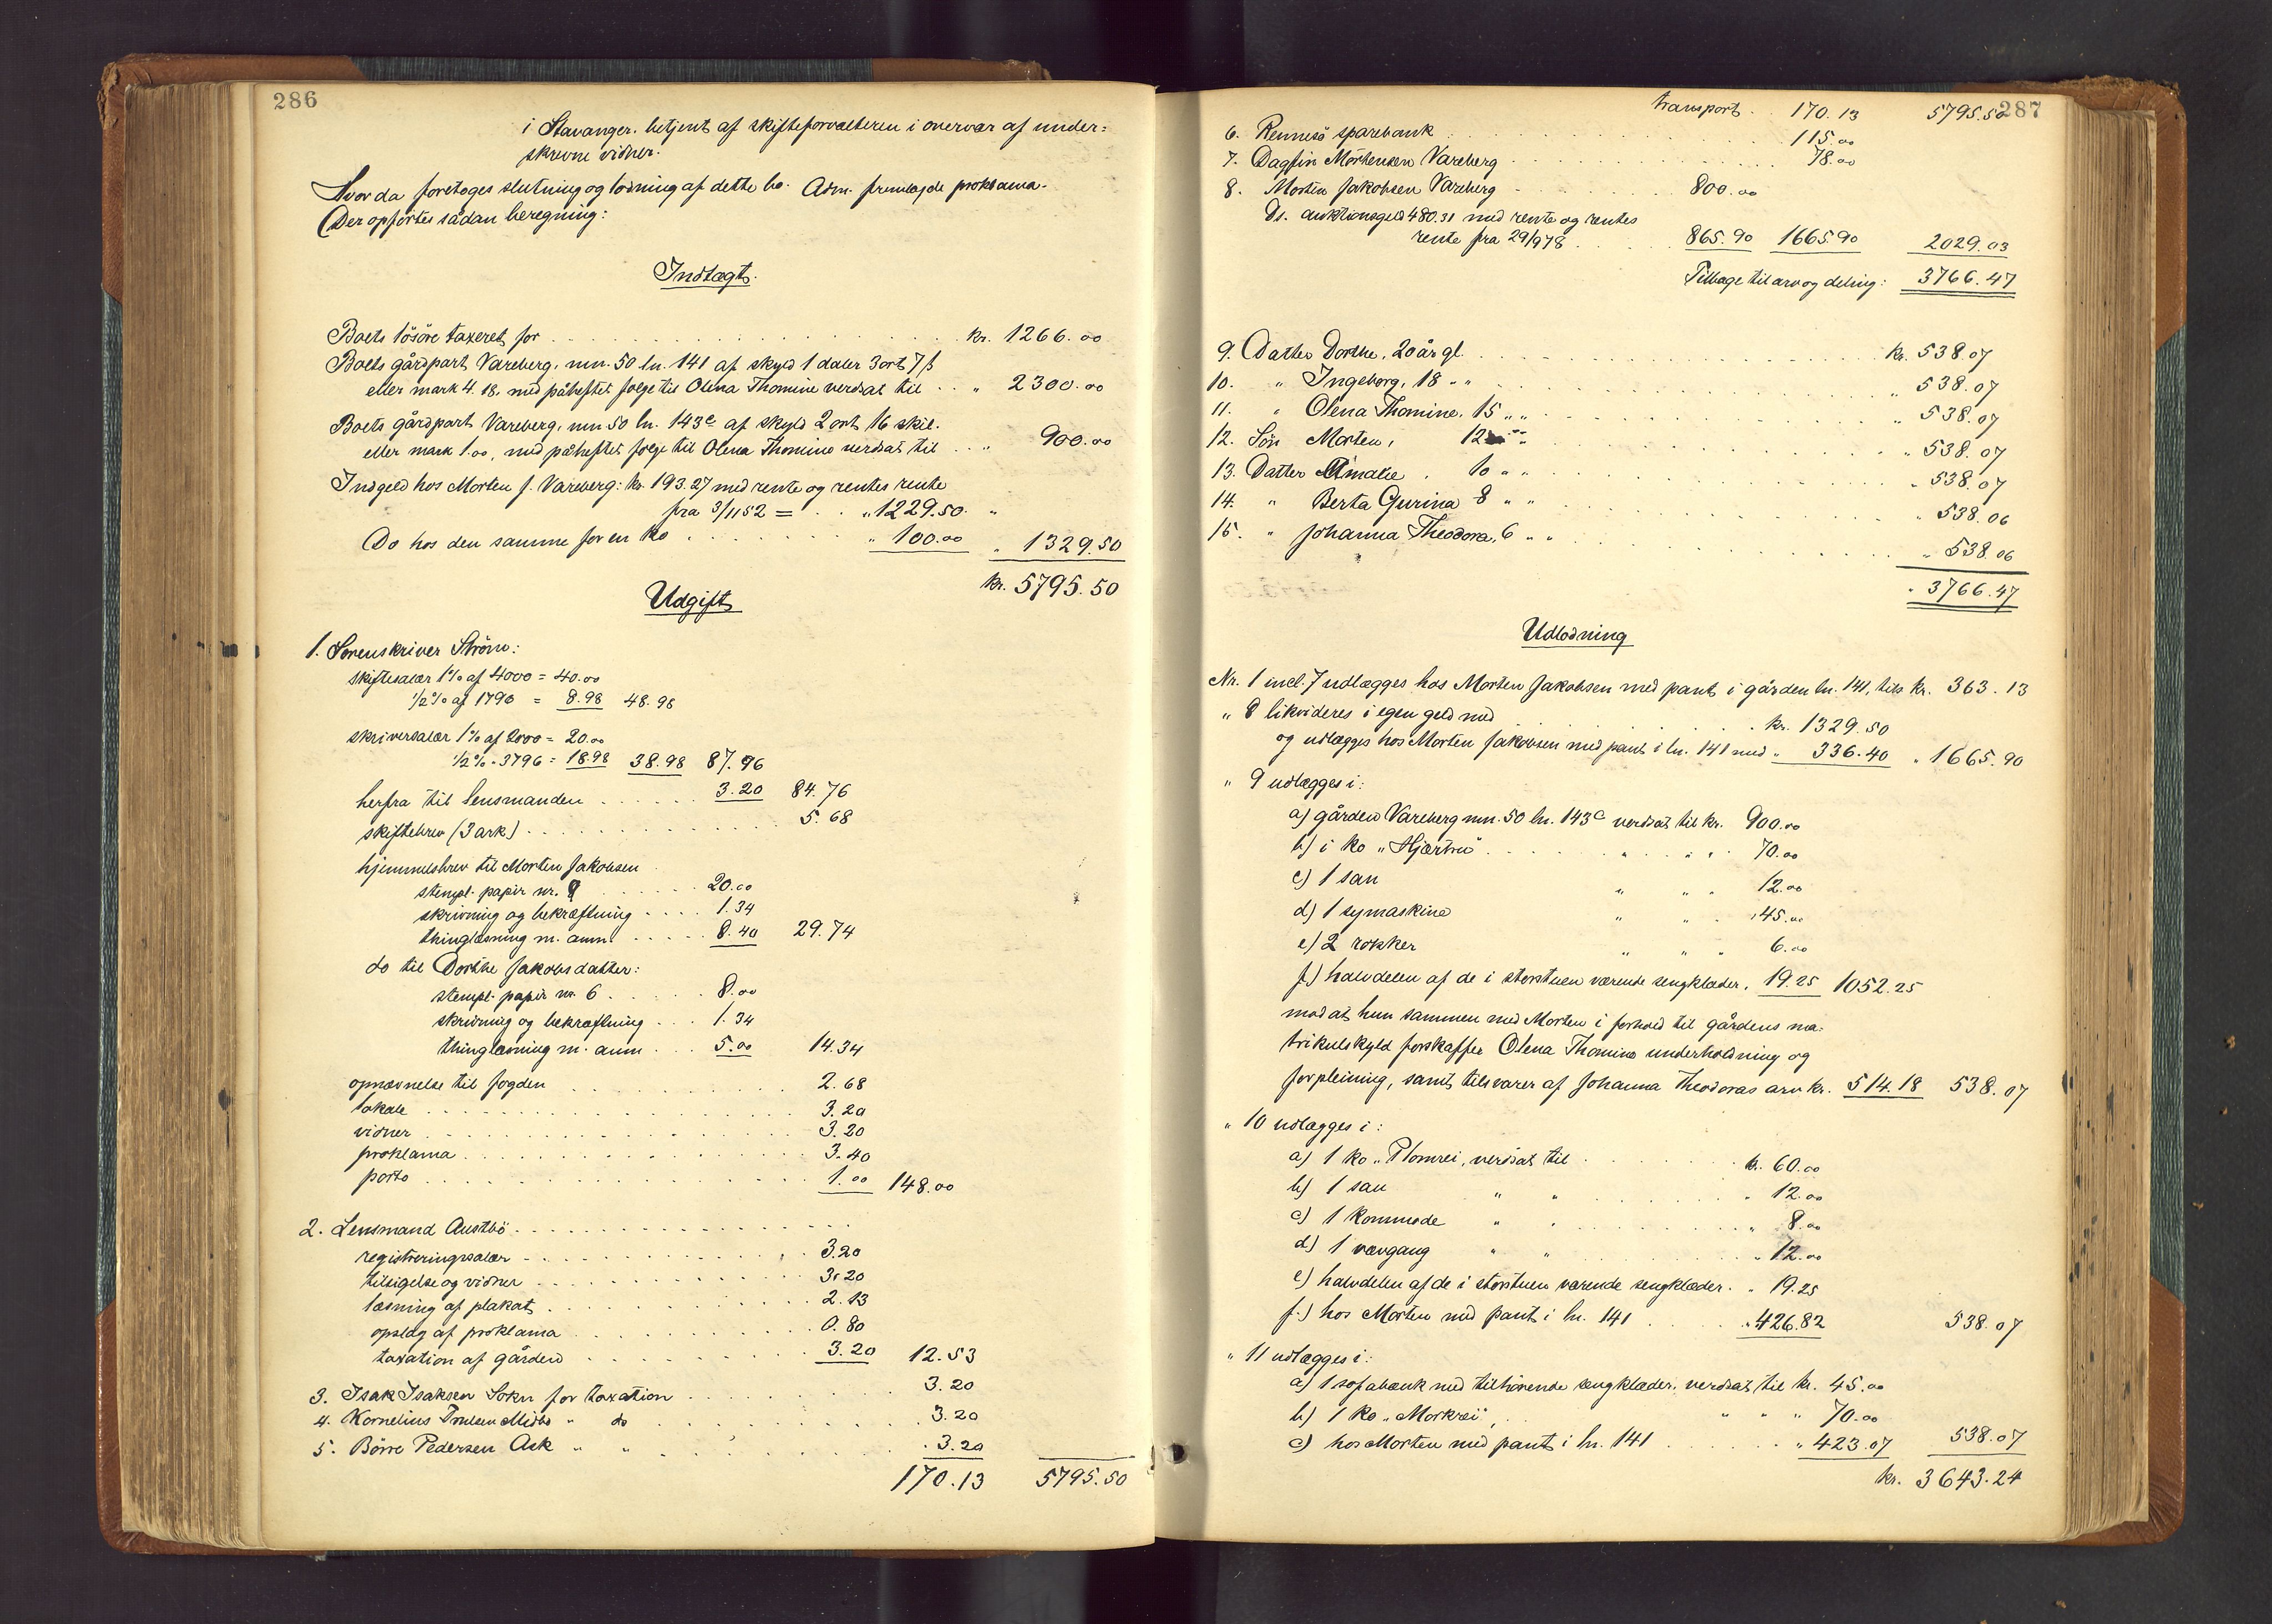 286
i Stavanger, betjent af skifteforvalteren i overvær af under-
skrevne vidner.
Hvorda foretoges slutning og lodning af dette bo. Adm. fremlagde proklama.
Der opførtes sådan beregning:
Indtægt.
Boets lösöre taxeret for . . . kr. 1266.00
Boets gårdpart Vareberg, mn. 50 ln. 141 af skyld 1 daler 3 ort 7 ß
eller mark 4.18, med påheftet følge til Olena Thomine verdsat til . . „ 2300.00
Boets gårdpart Vareberg, mn 50 ln. 143c af skyld 2 ort 16 skil.
eller mark 1.00, med påheftet følge til Olena Thomine verdsat til . . „ 900.00
Indgeld hos Morten J. Vareberg: kr. 193.27 med rente og rentes rente
fra 3/11 52 = . . „ 1229.50 „
Do hos den samme for en ko . . . „ 100.00 „ 1329.50
kr. 5795.50
Udgift
1. Sorenskriver Ström:
skiftesalær 1% af 4000 = 40.00
1/2% af 1796 = 8.98 48.98
skriversalær 1% af 2000 = 20.00
1/2% „ 3796 = 18.98 38.98 87.96
herfra til lensmanden . . . 3.20 84.76
skiftebrev (3 ark) . . . 5.68
hjemmelsbrev til Morten Jakobsen
stempl. papir nr. 9 . . . 20.00
skrivning og bekræftning . . . 1.34
thinglæsning m. anm. . . . 8.40 29.74
do til Dorthe Jakobsdatter:
stempl. papir nr. 6 . . . 8.00
skrivning og bekræftning . . . 1.34
thinglæsning m. anm . . . 5.00 14.34
opnævnelse til fogden . . . 2.68
lokale . . . 3.20
vidner . . . 3.20
proklama . . . 3.40
porto . . . 1.00 148.00
2. Lensmand Austbö . . .
registreringssalær . . . 3.20
tilsigelse og vidner . . . 3.20
læsning af plakat . . . 2.13
opslag af proklama . . . 0.80
taxation af gården . . . 3.20 12.53
3. Isak Isaksen Sokn for taxation . . . 3.20
4. Kornelius Midbö „ do . . . 3.20
5. Börre Pedersen Ask „ „ . . . 3.20
170.13 5795.50
287
transport . 170.13 5795.50
6. Rennesö sparebank . . . 115.00
7. Dagfin Mortensen Vareberg . . . 78.00
8. Morten Jakobsen Vareberg . . . 800.00
Ds. auktionsgeld 480.31 med rente og rentes
rente fra 29/9 78 . . . 865.90 1665.90 2029.03
Tilbage til arv og deling: 3766.47
9. Datter Dorthe, 20 år gl. . . . kr. 538.07
10. „ Ingeborg, 18 „ „ . . . „ 538.07
11. „ Olena Thomine, 15 „ „ . . . „ 538.07
12. Sön Morten, 12 „ „ . . . „ 538.07
13. Datter Amalie, 10 „ „ . . . „ 538.07
14. „ Berta Gurina 8 „ „ . . . „ 538.06
15. „ Johanna Theodora, 6 „ „ . . . „ 538.06
„ 3766.47
Udlodning
Nr. 1 incl. 7 udlægges hos Morten Jakobsen med pant i gården ln. 141, tils kr. 363.13
„ 8 likvideres i egen geld med . . . kr. 1329.50
og udlægges hos Morten Jakobsen med pant i ln. 141 med „ 336.40 „ 1665.90
„ 9 udlægges i:
a) gården Vareberg mn. 50 ln. 143c verdsat til kr. 900.00
b) i ko „Hjartrei“ . . . „ „ „ 70.00
c) 1 sau „ „ „ 12.00
d) 1 symaskine „ „ „ 45.00
e) 2 rokker „ „ „ 6.00
f) halvdelen af de i storstuen værende sengklæder. 19.25 1052.25
mod at hun sammen med Morten i forhold til gårdens ma-
trikulskyld forskaffer Olena Thomine underholdning og
forpleining, samt tilsvarer af Johanna Theodoras arv kr. 514.18 538.07
„ 10 udlægges i:
a) 1 ko „Plomrei, verdsat til . . . kr. 60.00
b) 1 sau „ „ . . . „ 12.00
c) 1 kommode „ „ . . . „ 8.00
d) 1 vævgang „ „ . . . „ 12.00
e) halvdelen af de i storstuen værende sengklæder. „ 19.25
f.) hos Morten med pant i ln. 141 . . . „ 426.82 538.07
„ 11 udlægges i:
a) 1 sofabænk med tilhörende sengklæder, verdsat til kr. 45.00
b) 1 ko „Morkrei“, . . . „ „ „ 70.00
c) hos Morten med pant i ln. 141 . . . „ 423.07 538.07
kr. 3643.24